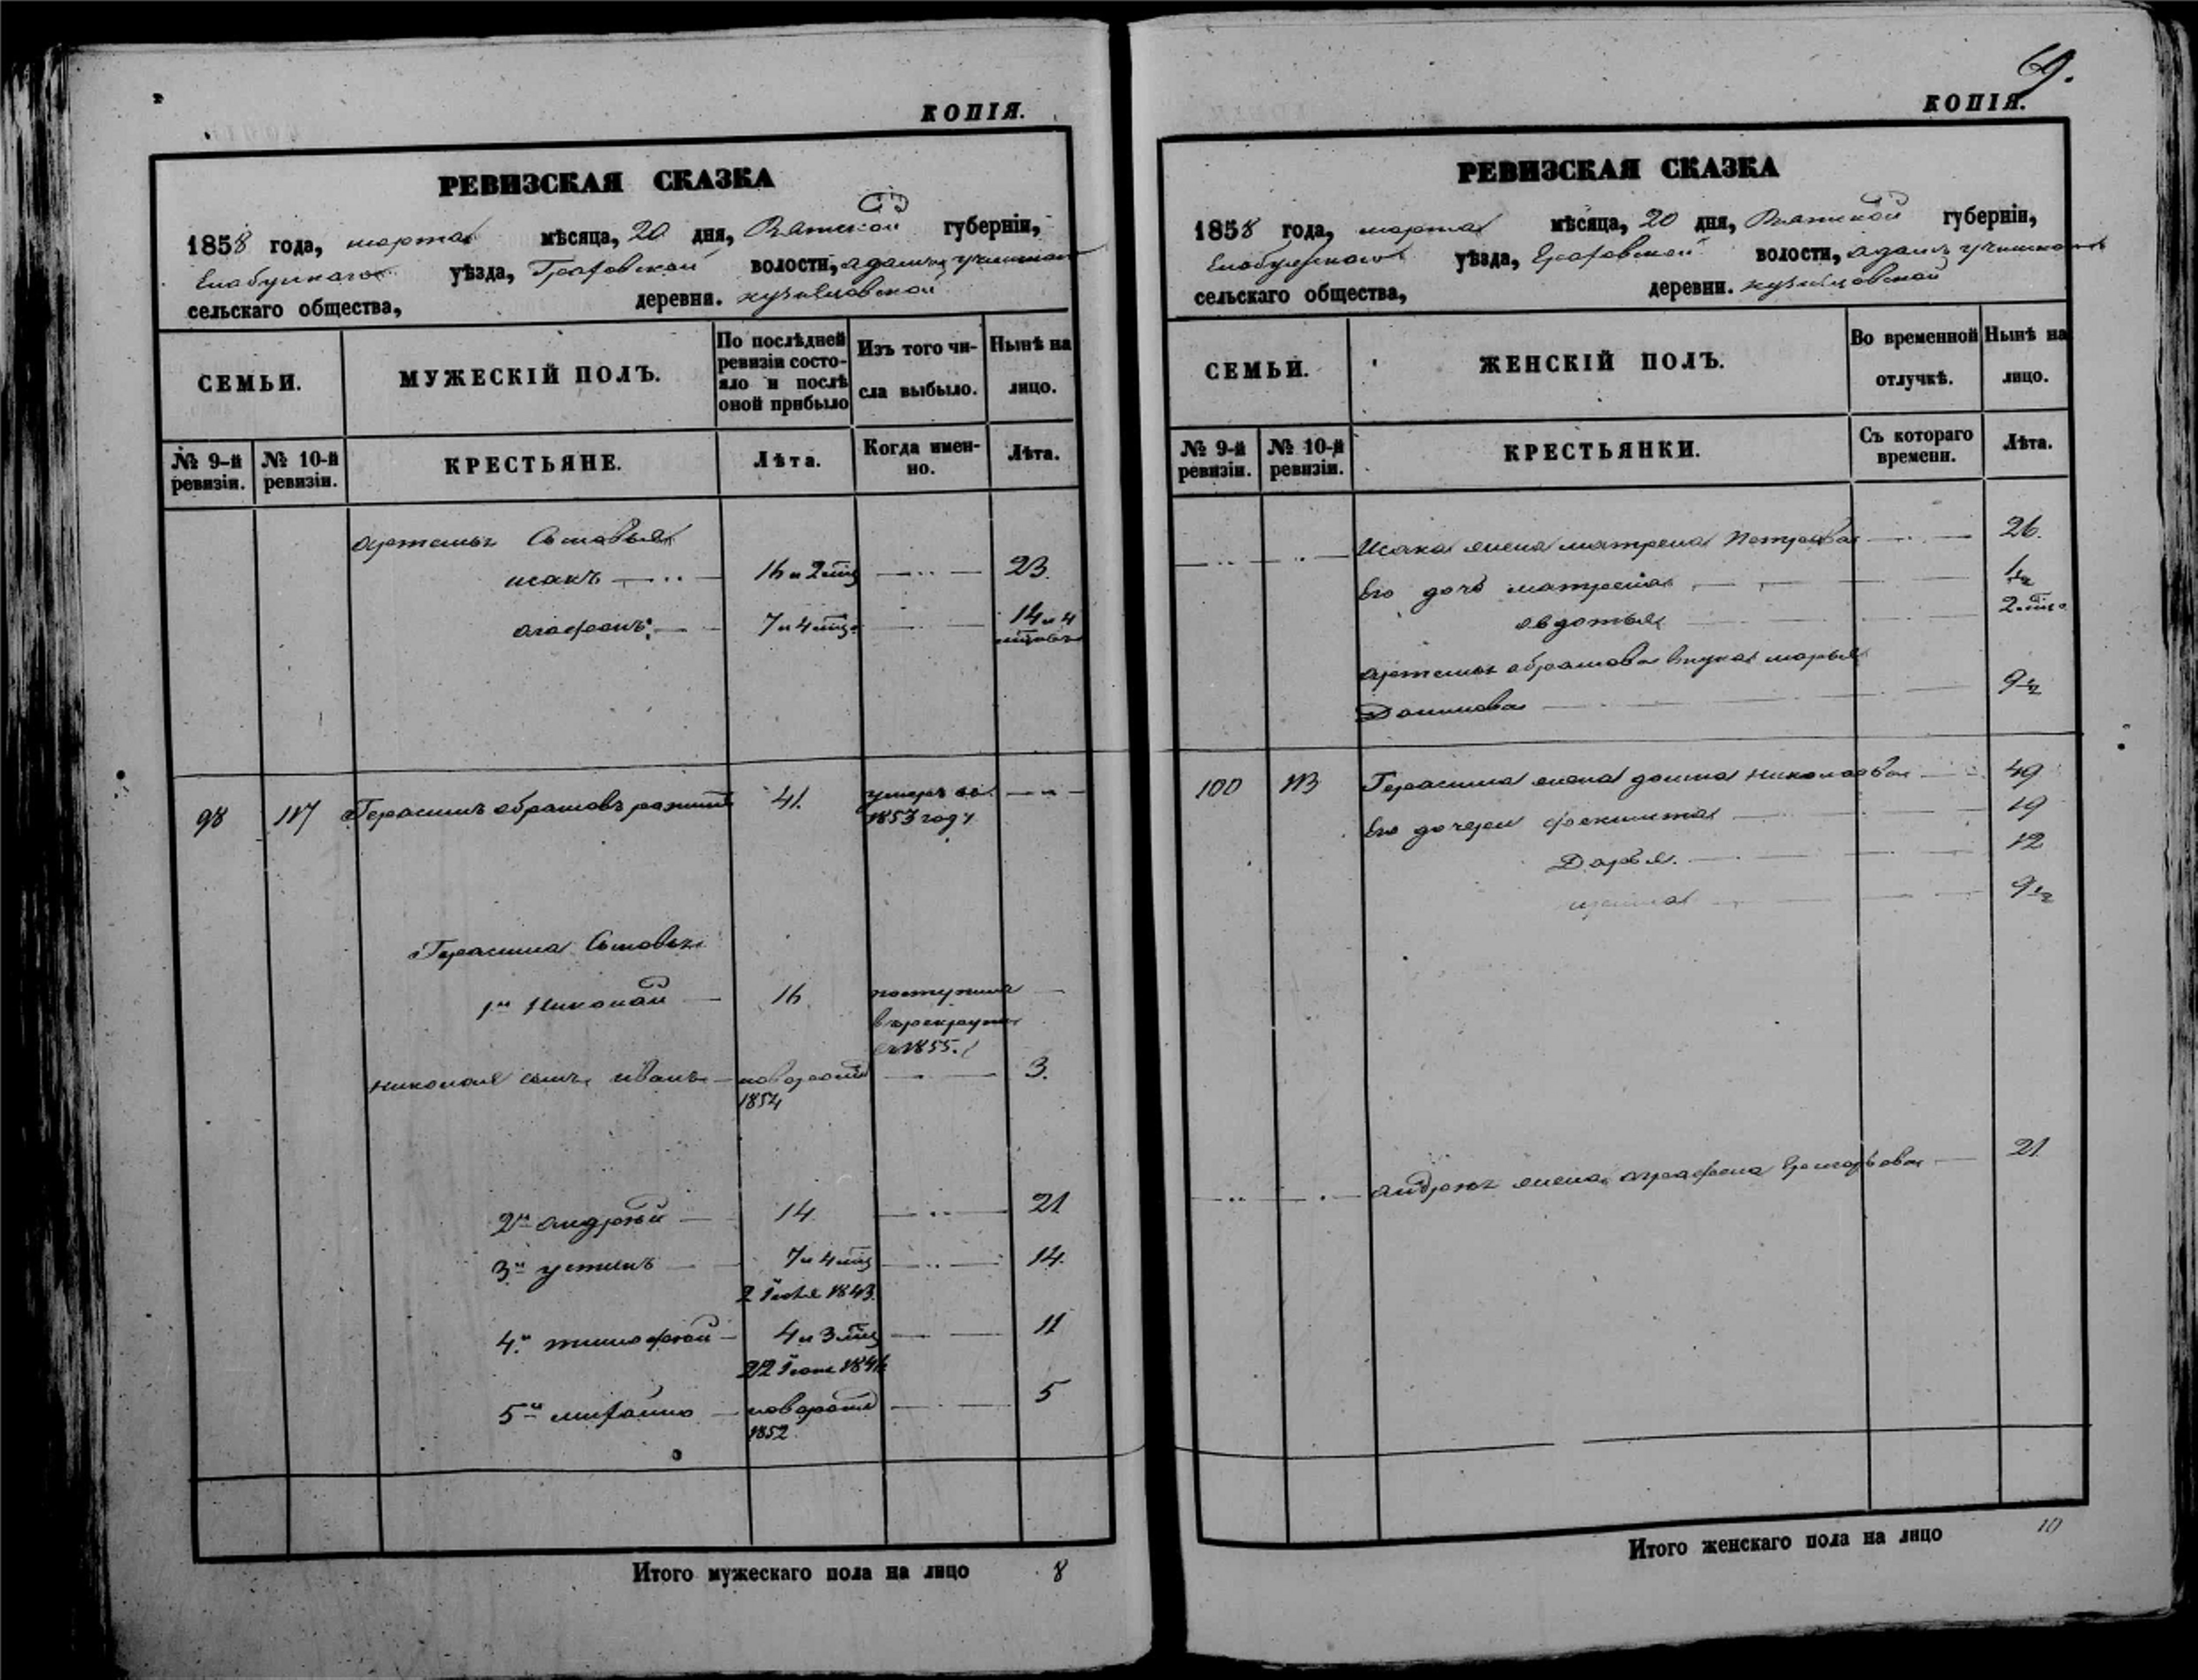 КОПІЯ.
РЕВИЗСКАЯ СКАЗКА
1858 года, марта мѣсяца, 20 дня, Вятской губерніи,
Елабужского уѣзда, Граховской волости,
сельскаго общества, деревня.
СЕМЬИ.
МУЖЕСКІЙ ПОЛЪ.
По послѣдней ревизіи состояло и послѣ оной прибыло
Изъ того числа выбыло.
Нынѣ на лицо.
№ 9-й ревизіи.
№ 10-й ревизіи.
КРЕСТЬЯНЕ.
Лѣта.
Когда именно.
Лѣта.
Артемья Сыновья
исакъ 16 и 2 мѣц 23.
агафонъ 7 и 4 мѣц. 14 и 4
98 117 Герасимъ абрамовъ 41. умеръ въ
1853 году
Герасима Сыновья
1й Николай 16 поступилъ
в рекруты
въ 1855.
николая сынъ иванъ новорожд 3.
1854
2й андрѣй 14 21
3й устинъ 7 и 4 мѣц 14.
2 1843.
4й тимофѣй 4 и 3 мѣц 11
22 1846
5й михайло новорожд 5
1852
Итого мужескаго пола на лицо 8
69.
КОПІЯ.
РЕВИЗСКАЯ СКАЗКА
1858 года, марта мѣсяца, 20 дня, Вятской губерніи,
Елабужского уѣзда, Граховской волости,
сельскаго общества, деревни.
СЕМЬИ.
ЖЕНСКІЙ ПОЛЪ.
Во временной отлучкѣ.
Нынѣ на лицо.
№ 9-й ревизіи.
№ 10-й ревизіи.
КРЕСТЬЯНКИ.
Съ котораго времени.
Лѣта.
Исака жена матрена Петрова 26.
Его дочь 1½
овдотья 2 мѣц.
Артемья абрамова внука марья
9½
100 113 Герасима жена домна николаева 49
Его дочери 19
Дарья. 12
9½
андрея жена аграфена Григорьева 21.
Итого женскаго пола на лицо 10